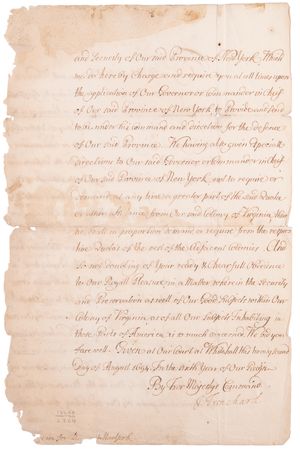 and Security of Our said Province of New York. Which
we do hereby Charge and require you at all times upon
the application of Our Governor or Commander in Cheif
of Our said Province of New York to Provide and send
to him under his command and direction for the defence
of Our said Province. We having also given Especiall
directions to Our said Governor or Commander in Cheif
of Our said Province of New York not to require or
demand at any time a greater part of the said Quota
or Assistance from Our said Colony of Virginia, than
he shall in proportion demand or require from the respec-
tive Quotas of the rest of the Adjacent Colonies. And
so not doubting of Your ready & Chearfull Obedience
to Our Royall Pleasure in a Matter wherein the Security
and Preservation as well of Our Good Subjects within Our
Colony of Virginia as of all Our Subjects Inhabiting in
those Parts of America is so much concerned We bid you
farewell. Given at Our Court at Whitehall this twenty second
Day of August 1694. In the Sixth Year of Our Reign.
By Her Majestys Command
J Trenchard